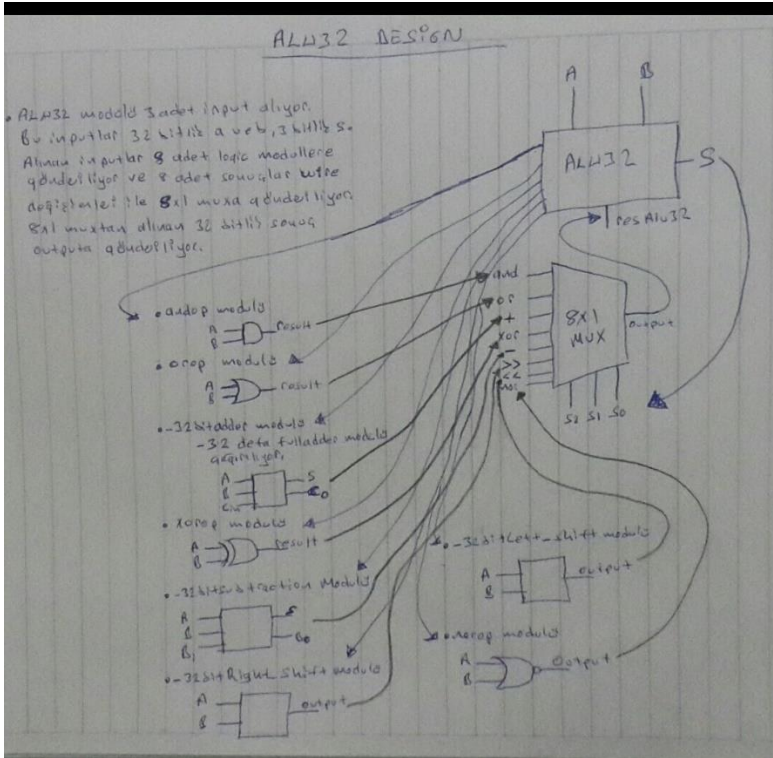 ALU32 DESİGN
• ALU32 modülü 3 adet input alıyor.
Bu inputlar 32 bitlik a ve b, 3 bitlik s.
Alınan inputlar 8 adet logic modullere
gönderiliyor ve 8 adet sonuçlar wire
değişkenleri ile 8x1 muxa gönderiliyor.
8x1 muxtan alınan 32 bitlik sonuç
outputa gönderiliyor.
A
B
ALU32
S
resAlu32
and
or
+
xor
-
>>
<<
nor
8x1
MUX
output
S2 S1 S0
• andop modülü
A
B
result
• orop modülü
A
B
result
• -32bitadder modülü
-32 defa fulladder modülü
çağırılıyor.
A
B
Cin
S
Co
• xorop modülü
A
B
result
• -32bitsubtraction Modülü
A
B
Bo
• -32bitRight_shift modülü
A
B
output
• -32bitLeft_shift modülü
A
B
output
• norop modülü
A
B
Output